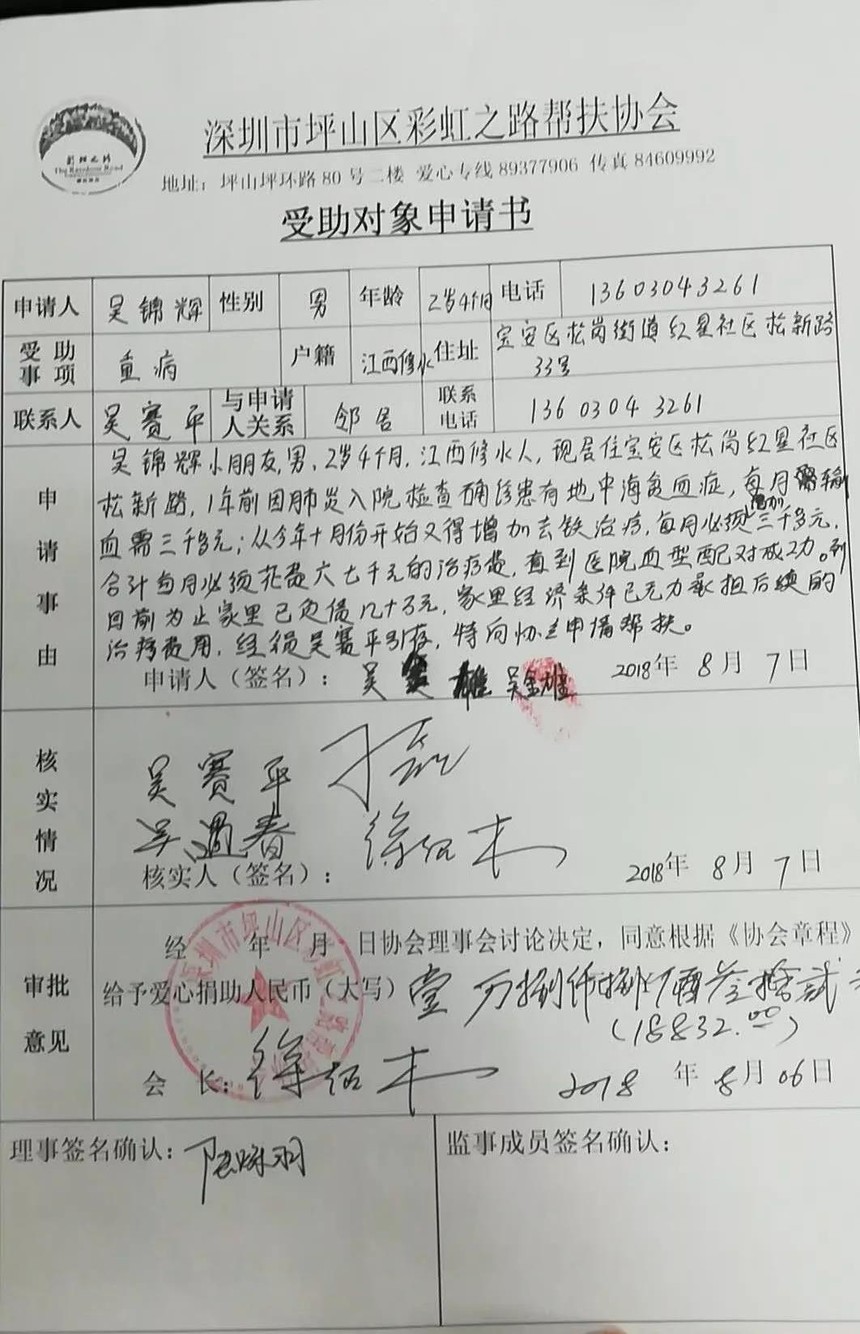 彩虹之路
The Rainbow Road
深圳市坪山区彩虹之路帮扶协会
地址：坪山坪环路80号二楼 爱心专线89377906 传真84609992
受助对象申请书
申请人 吴锦辉 性别 男 年龄 2岁4个月 电话 13603043261
受助事项 重病 户籍 江西修水 住址 宝安区松岗街道红星社区松新路
33号
联系人 吴赛平 与申请人关系 邻居 联系电话 13603043261
申请事由
吴锦辉小朋友,男、2岁4个月,江西修水人,现居住宝安区松岗红星社区
松新路,1年前因肺炎入院检查确诊患有地中海贫血症,每月需输
血需三千多元;从今年十月份开始又得增加去铁治疗,每月必须增加三千多元,
合计每月必须花费六七千元的治疗费,直到医院血型配对成功。到
目前为止家里已负债几十万元,家里经济条件已无力承担后续的
治疗费用,经 吴赛平引荐,特向协会申请帮扶。
申请人（签名）： 吴 雄 吴金雄 2018年 8月 7日
核实情况
吴赛平
吴过春 徐绍木
核实人（签名）： 2018年 8月 7日
审批意见
经 年 月 日协会理事会讨论决定，同意根据《协会章程》
给予爱心捐助人民币（大写） 壹万捌仟捌佰叁拾贰
(18832.00)
会 长：徐绍木 2018 年 8月 06日
深圳市坪山区彩虹之路帮扶协会
理事签名确认： 监事成员签名确认：